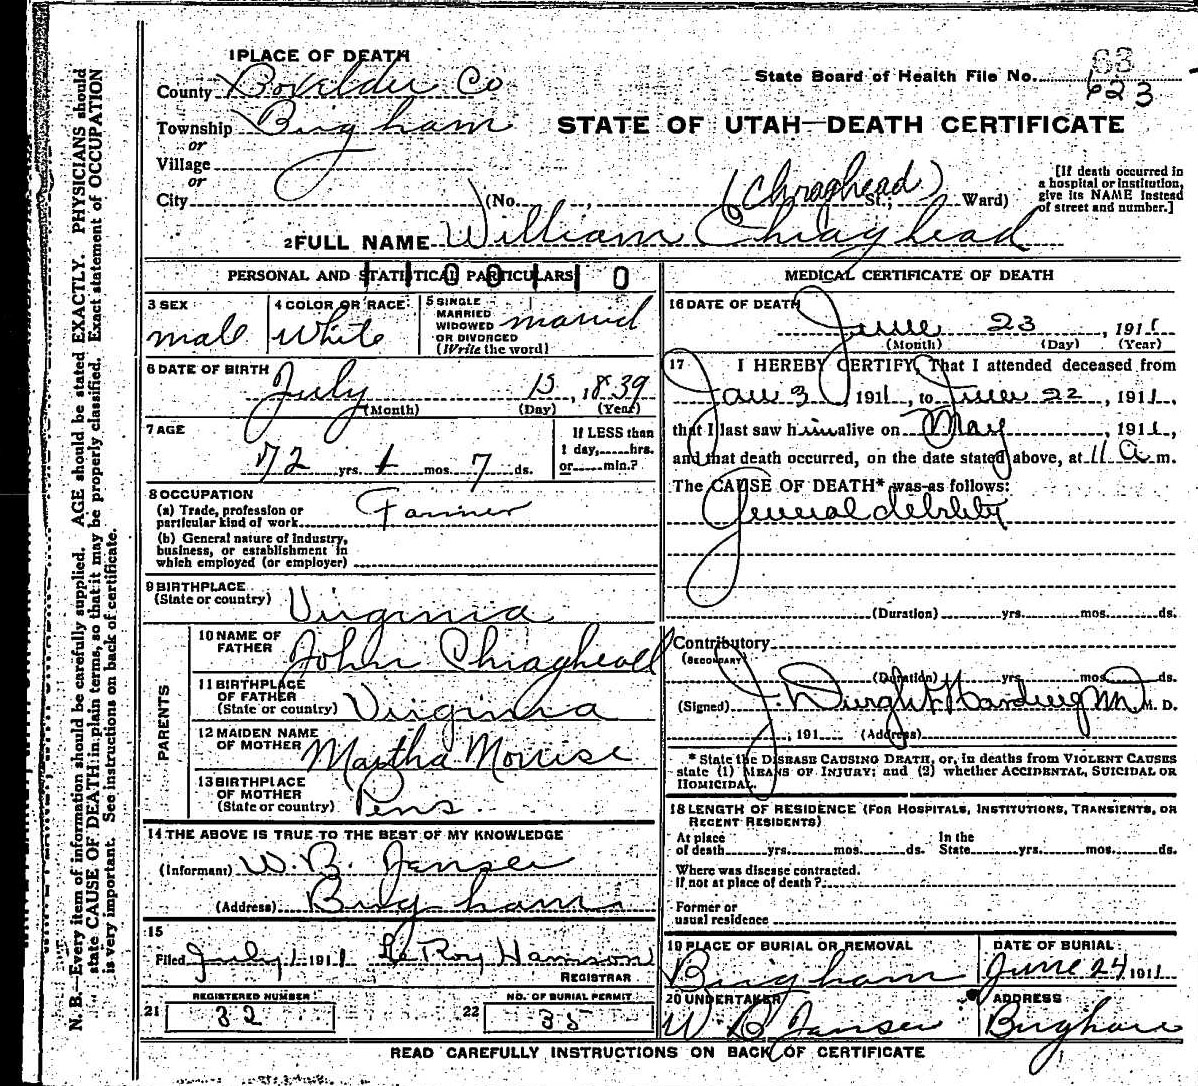 1 PLACE OF DEATH
County Boxilder Co
State Board of Health File No. 63
623
Township Brigham
or
Village
or
City
STATE OF UTAH—DEATH CERTIFICATE
(No. , (Chraghead) St.; Ward)
[If death occurred in
a hospital or institution,
give its NAME instead
of street and number.]
2 FULL NAME William Chraghead
PERSONAL AND STATISTICAL PARTICULARS
3 SEX
male
4 COLOR OR RACE
White
5 SINGLE
MARRIED
WIDOWED
OR DIVORCED
(Write the word)
married
6 DATE OF BIRTH
July 15, 1839
(Month) (Day) (Year)
7 AGE
72 yrs. mos. 7 ds.
If LESS than
1 day, hrs.
or min.?
8 OCCUPATION
(a) Trade, profession or
particular kind of work Farmer
(b) General nature of industry,
business, or establishment in
which employed (or employer)
9 BIRTHPLACE
(State or country) Virginia
PARENTS
10 NAME OF
FATHER John Chraghead
11 BIRTHPLACE
OF FATHER
(State or country) Virginia
12 MAIDEN NAME
OF MOTHER Martha
13 BIRTHPLACE
OF MOTHER
(State or country) Pens
14 THE ABOVE IS TRUE TO THE BEST OF MY KNOWLEDGE
(Informant) W. B. Jansen
(Address) Brigham
15
Filed July 1 1911 LeRoy
REGISTRAR
21 REGISTERED NUMBER
32
22 NO. OF BURIAL PERMIT
35
MEDICAL CERTIFICATE OF DEATH
16 DATE OF DEATH
June 23, 1911
(Month) (Day) (Year)
17 I HEREBY CERTIFY, That I attended deceased from
Jan 3 1911, to June 22, 1911,
that I last saw him alive on May, 1911,
and that death occurred, on the date stated above, at 11 a m.
The CAUSE OF DEATH* was as follows:
General debility
(Duration) yrs. mos. ds.
Contributory
(SECONDARY)
(Duration) yrs. mos. ds.
(Signed) J. Dwight Harding MD M. D.
, 191 (Address)
* State the DISEASE CAUSING DEATH, or, in deaths from VIOLENT CAUSES
state (1) MEANS OF INJURY; and (2) whether ACCIDENTAL, SUICIDAL OR
HOMICIDAL.
18 LENGTH OF RESIDENCE (FOR HOSPITALS, INSTITUTIONS, TRANSIENTS, OR
RECENT RESIDENTS)
At place
of death yrs. mos. ds.
In the
State yrs. mos. ds.
Where was disease contracted.
If not at place of death?
Former or
usual residence
19 PLACE OF BURIAL OR REMOVAL
Brigham
DATE OF BURIAL
June 24 1911
20 UNDERTAKER
W B Jansen
ADDRESS
Brigham
READ CAREFULLY INSTRUCTIONS ON BACK OF CERTIFICATE
N. B.—Every item of information should be carefully supplied. AGE should be stated EXACTLY. PHYSICIANS should
state CAUSE OF DEATH in plain terms, so that it may be properly classified. Exact statement of OCCUPATION
is very important. See instructions on back of certificate.